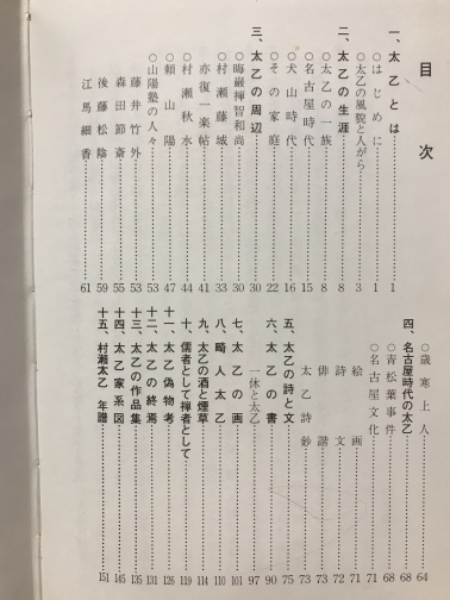 目次
一、太乙とは……1
○はじめに……1
○太乙の風貌と人がら……3
二、太乙の生涯……8
○太乙の一族……8
○名古屋時代……15
○犬山時代……16
○その家庭……22
三、太乙の周辺……30
○晦巌禅智和尚……30
○村瀬藤城……33
亦復一楽帖……41
○村瀬秋水……44
○頼山陽……47
○山陽塾の人々……53
藤井竹外……53
森田節斎……55
後藤松陰……59
江馬細香……61
○歳寒上人……64
四、名古屋時代の太乙……68
○青松葉事件……68
○名古屋文化……71
絵画……71
詩文……72
俳諧……73
太乙詩鈔……73
五、太乙の詩と文……75
六、太乙の書……90
一休と太乙……97
七、太乙の画……101
八、畸人太乙……110
九、太乙の酒と煙草……114
十、儒者として禅者として……119
十一、太乙偽物考……126
十二、太乙の終焉……131
十三、太乙の作品集……135
十四、太乙家系図……145
十五、村瀬太乙 年譜……151